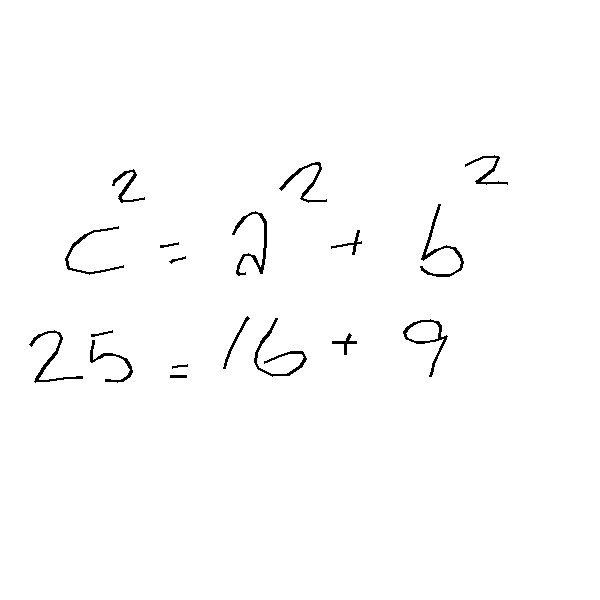 c² = a² + b²
25 = 16 + 9